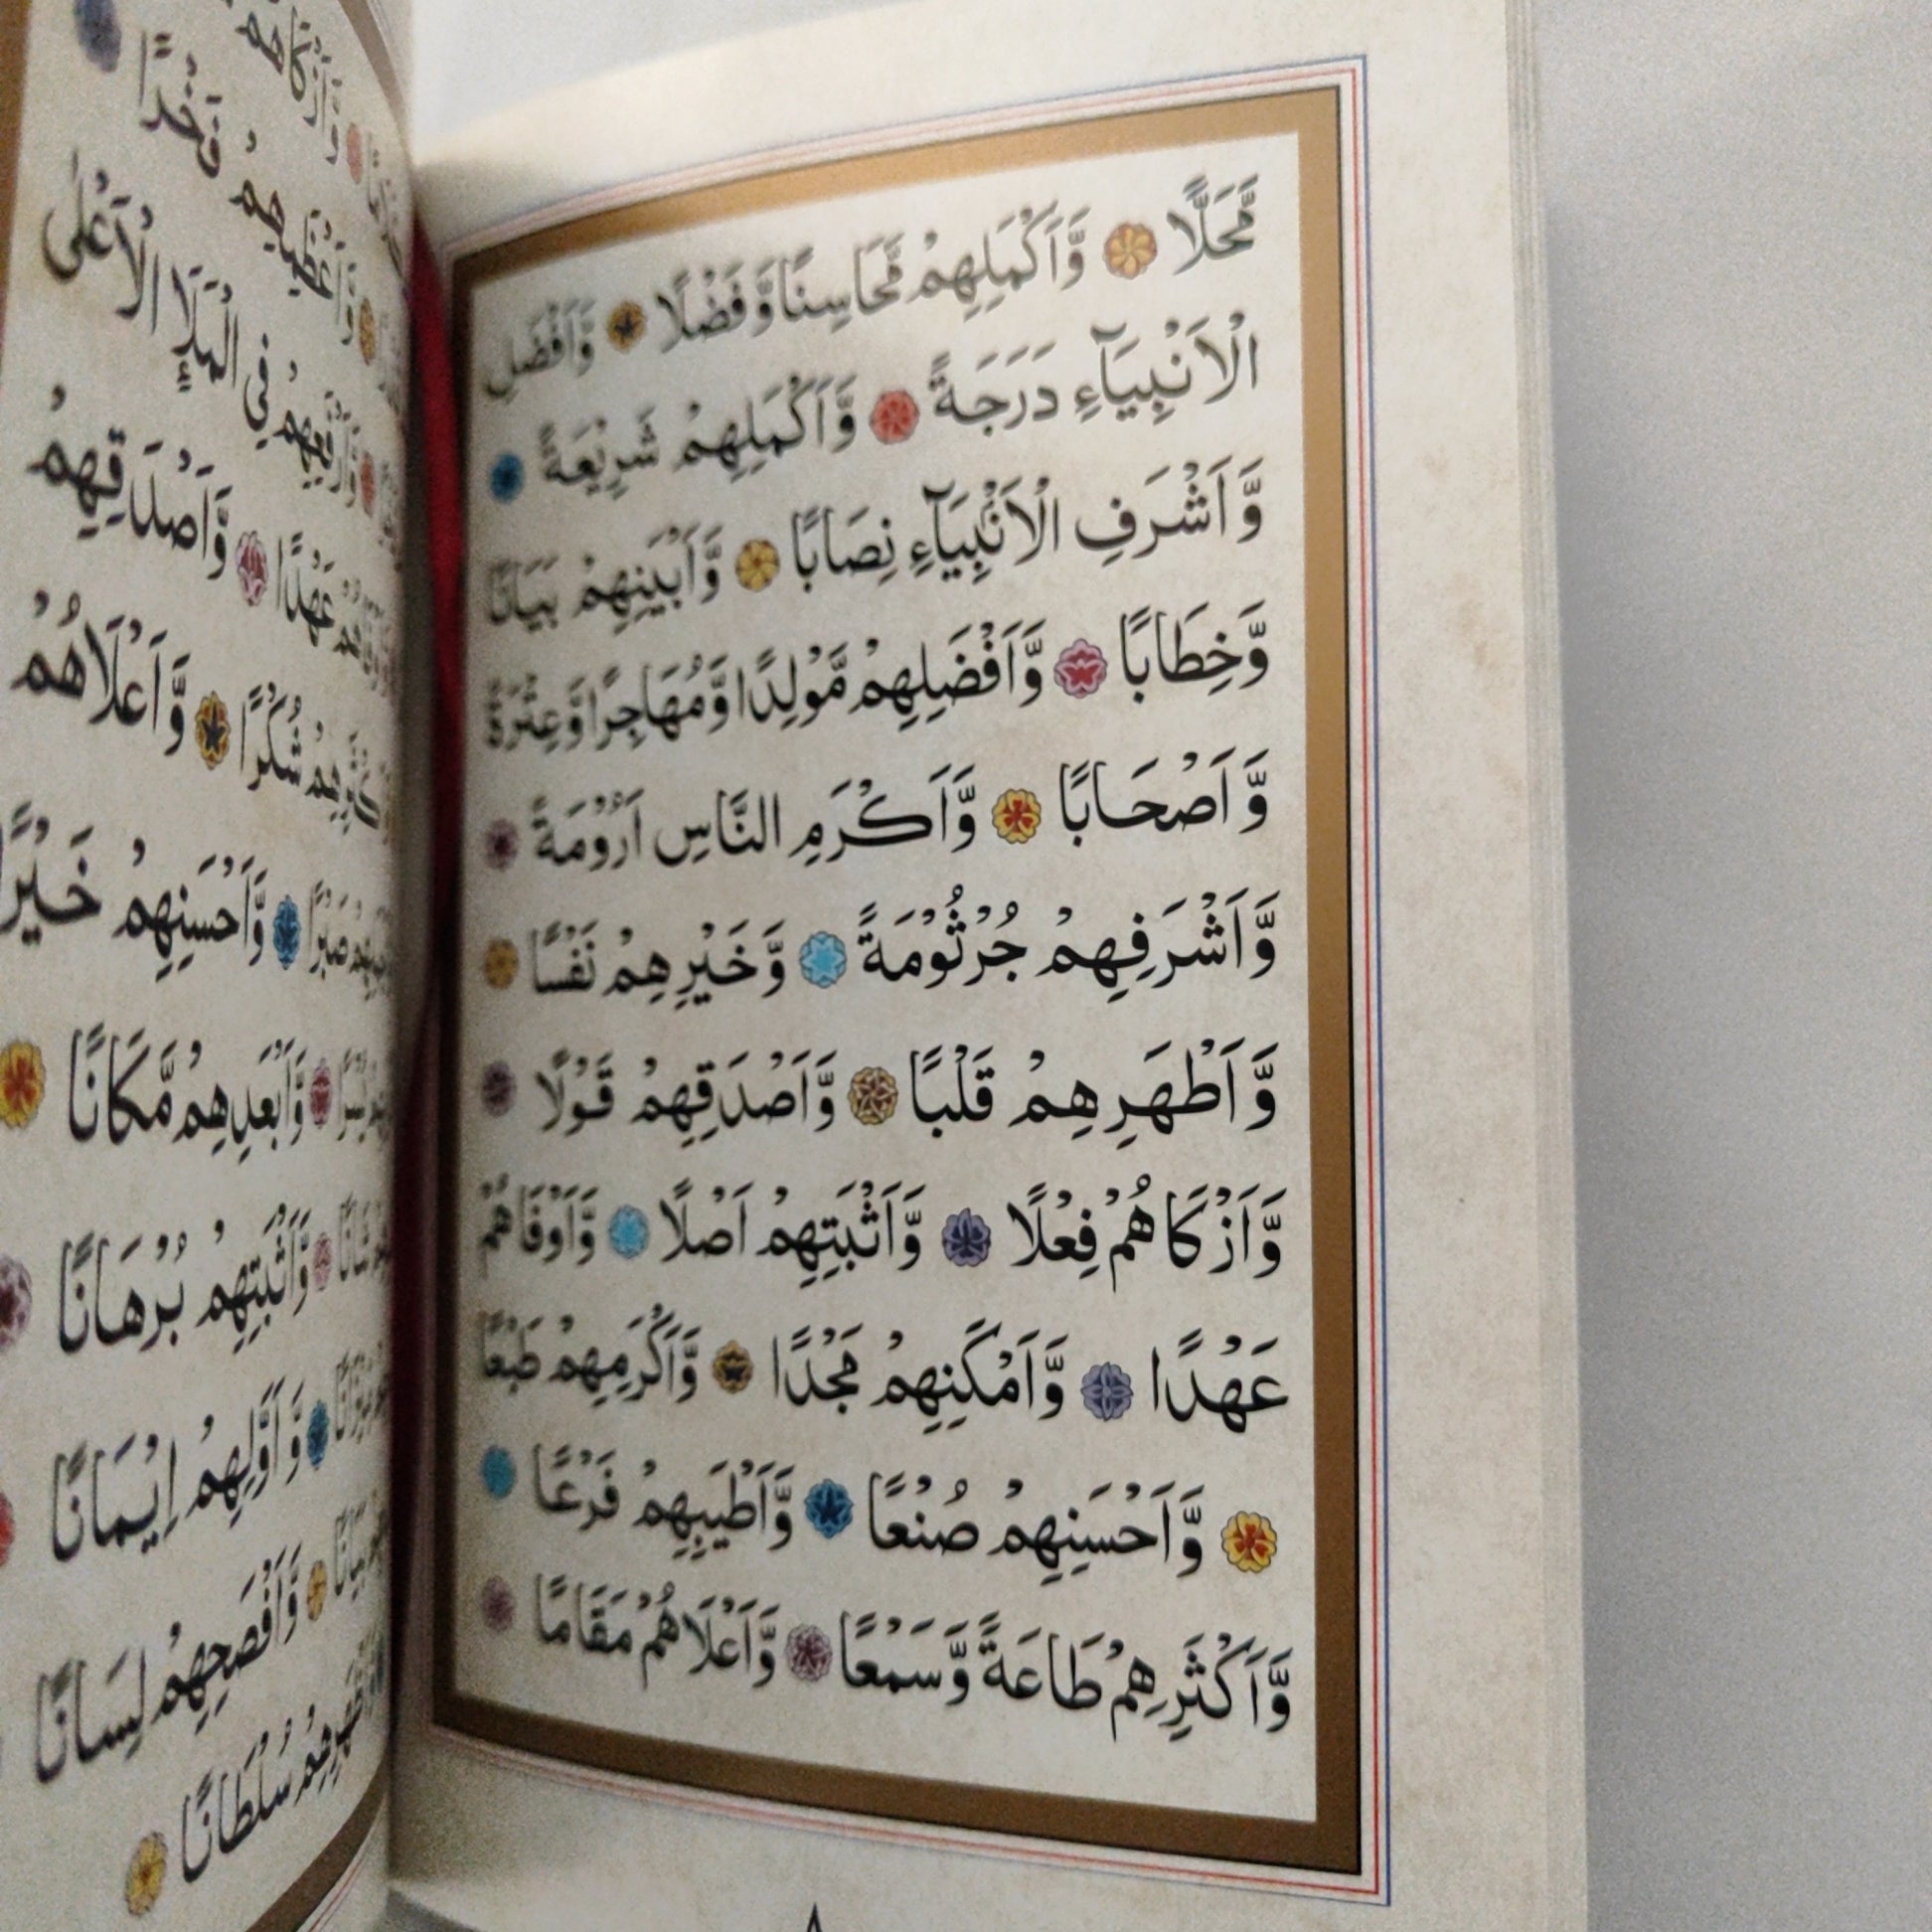 مَّحَلًّا وَّاَكْمَلِهِمْ مَّحَاسِنًا وَّفَضْلًا وَّاَفْضَلِ
الْاَنْبِيَآءِ دَرَجَةً وَّاَكْمَلِهِمْ شَرِيْعَةً
وَّاَشْرَفِ الْاَنْۢبِيَآءِ نِصَابًا وَّاَبْيَنِهِمْ بَيَانًا
وَّخِطَابًا وَّاَفْضَلِهِمْ مَّوْلِدًا وَّمُهَاجِرًا وَّعِتْرَةً
وَّاَصْحَابًا وَّاَكْرَمِ النَّاسِ اَرُوْمَةً
وَّاَشْرَفِهِمْ جُرْثُوْمَةً وَّخَيْرِهِمْ نَفْسًا
وَّاَطْهَرِهِمْ قَلْبًا وَّاَصْدَقِهِمْ قَوْلًا
وَّاَزْكَاهُمْ فِعْلًا وَّاَثْبَتِهِمْ اَصْلًا وَّاَوْفَاهُمْ
عَهْدًا وَّاَمْكَنِهِمْ مَجْدًا وَّاَكْرَمِهِمْ طَبْعًا
وَّاَحْسَنِهِمْ صُنْعًا وَّاَطْيَبِهِمْ فَرْعًا
وَّاَكْثَرِهِمْ طَاعَةً وَّسَمْعًا وَّاَعْلَاهُمْ مَقَامًا
٨
وَّاَزْكَاهُمْ
وَّاَعْظَمِهِمْ فَخْرًا
وَّاَرْفَعِهِمْ فِي الْمَلَإِ الْاَعْلٰى
عَهْدًا وَّاَصْدَقِهِمْ
شُكْرًا وَّاَعْلَاهُمْ
صَبْرًا وَّاَحْسَنِهِمْ خَيْرًا
وَّاَبْعَدِهِمْ مَّكَانًا
وَّاَثْبَتِهِمْ بُرْهَانًا
وَّاَوَّلِهِمْ اِيْمَانًا
وَّاَفْصَحِهِمْ لِسَانًا
سُلْطَانًا